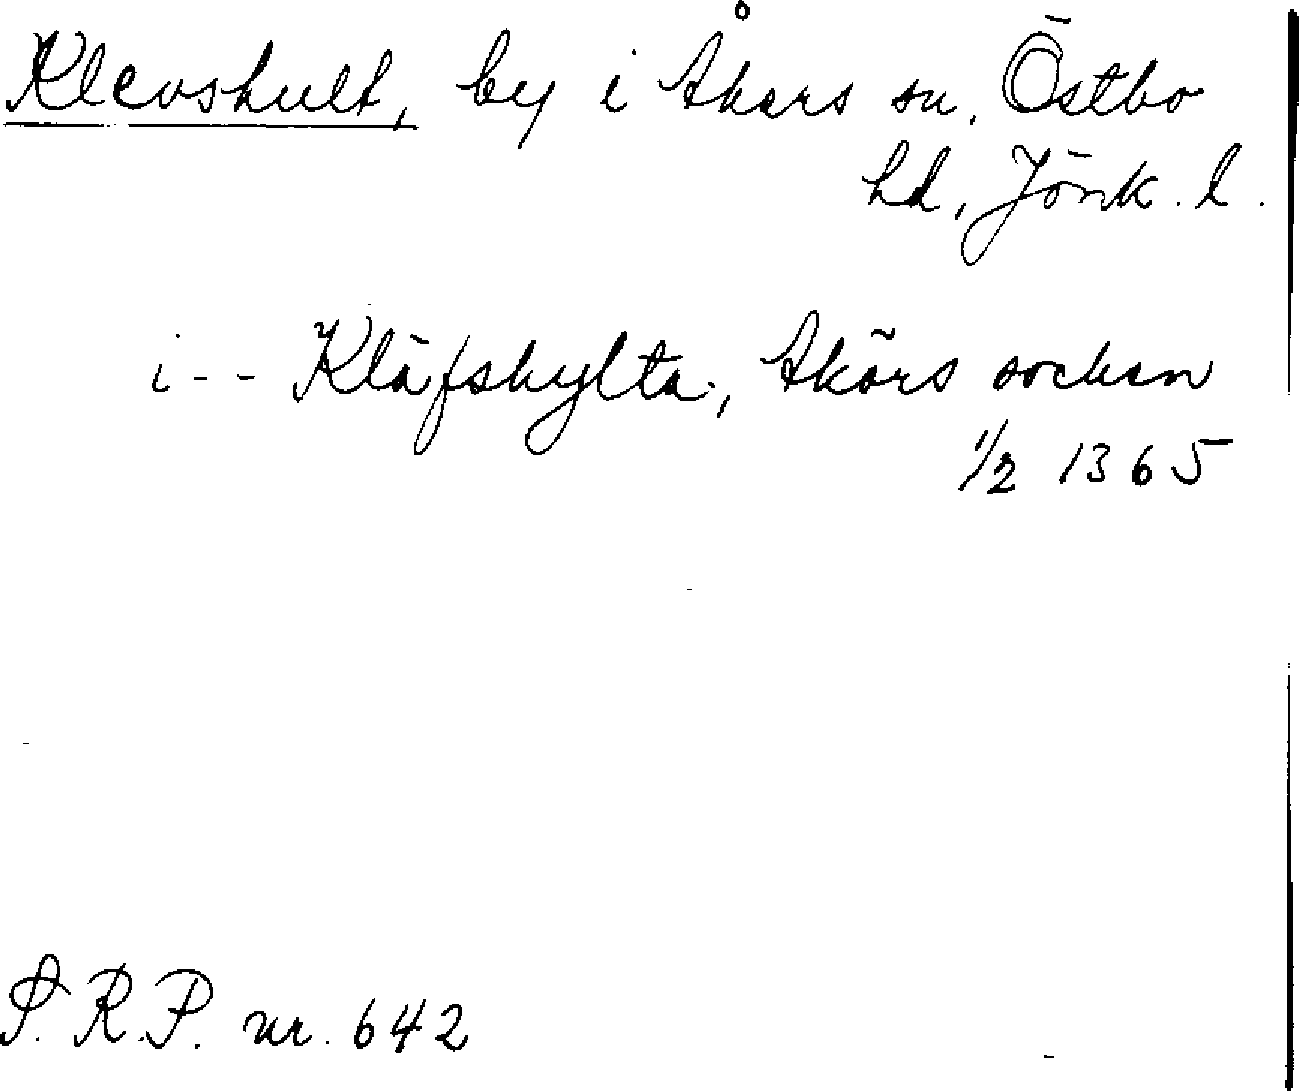 Klevshult, by i Åkers sn, Östbo
hd, Jönk. l.
i -- Kläfshylta, Akörs sochen
1/2 1365
S.R.P. nr. 642